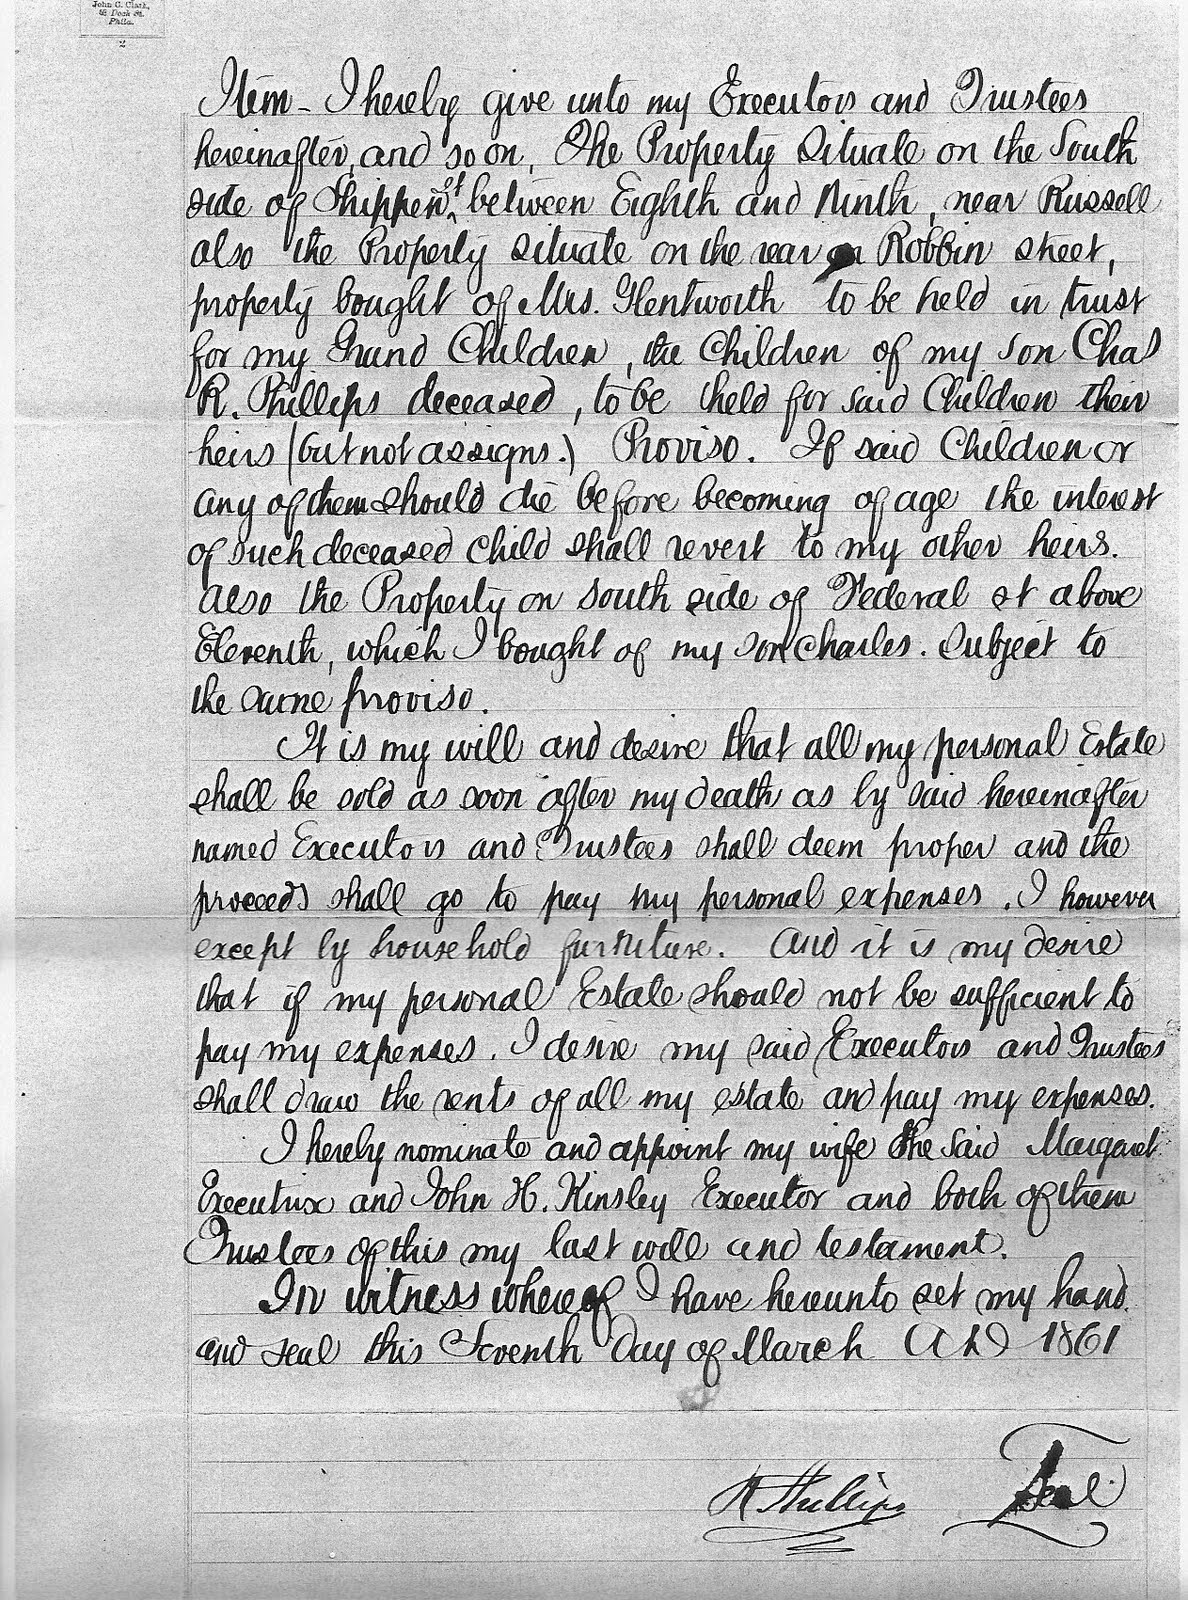 John C. Clark,
Dock St.
Phila.
2
Item - I hereby give unto my Executors and Trustees
hereinafter, and so on, The Property Situate on the South
side of Shippen st between Eighth and Ninth, near Russell
also the Property situate on the rear on Robbin street,
property bought of Mrs. Glentworth to be held in trust
for my Grand Children, the Children of my son Chas
R. Phillips deceased, to be held for said Children their
heirs (but not assigns.) Proviso. If said Children or
any of them should die before becoming of age the interest
of such deceased child shall revert to my other heirs.
Also the Property on South side of Federal st above
Eleventh, which I bought of my son Charles. Subject to
the same proviso.
It is my will and desire that all my personal Estate
shall be sold as soon after my death as by said hereinafter
named Executors and Trustees shall deem proper and the
proceeds shall go to pay my personal expenses. I however
except by household furniture. And it is my desire
that if my personal Estate should not be sufficient to
pay my expenses. I desire my said Executors and Trustees
shall draw the rents of all my estate and pay my expenses.
I hereby nominate and appoint my wife the said Margaret
Executrix and John H. Kinsley Executor and both of them
Trustees of this my last will and testament.
In witness whereof I have hereunto set my hand
and seal this Seventh Day of March A D 1861
R Phillips Seal